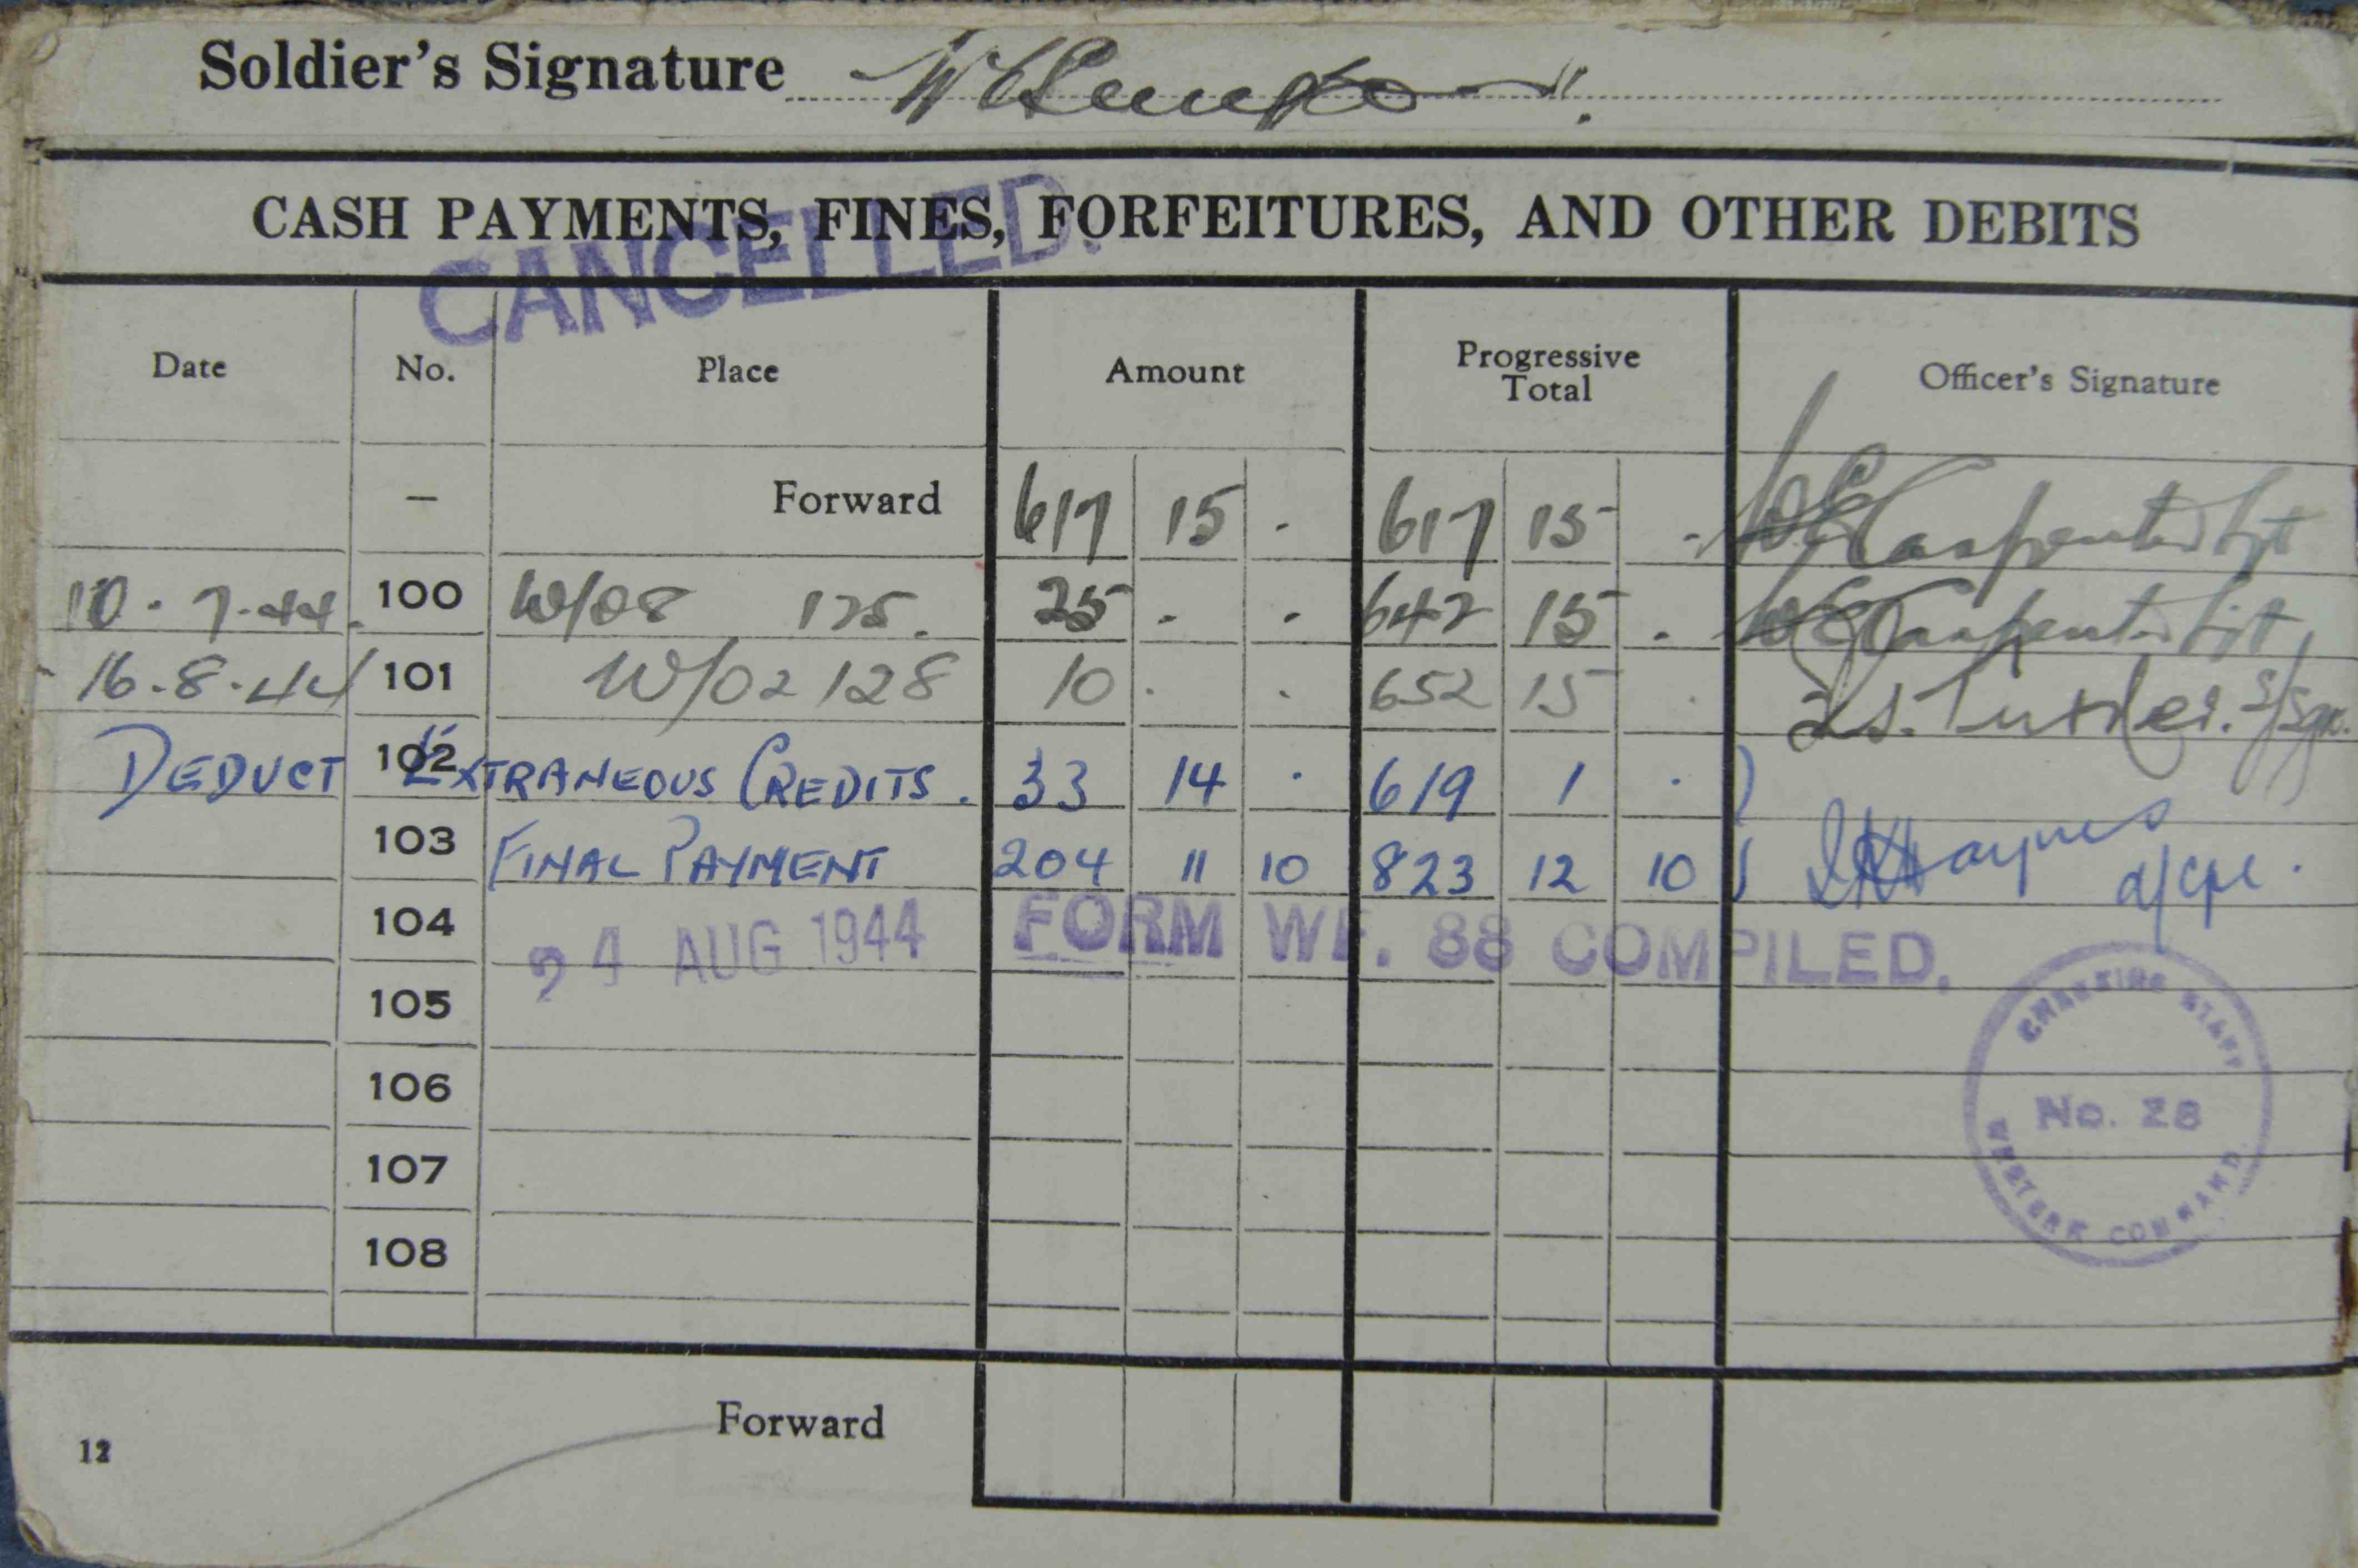 Soldier's Signature
CANCELLED.
CASH PAYMENTS, FINES, FORFEITURES, AND OTHER DEBITS
Date No. Place Amount Progressive Total Officer's Signature
– Forward 617 15 . 617 15 - WE Carpenter Lt
10.7.44. 100 W/08 125. 25 . . 642 15 . WE Carpenter Lt
16.8.44 101 W/02 128 10 . . 652 15 . S/Sgt.
DEDUCT 102 EXTRANEOUS CREDITS. 33 14 . 619 1 .
103 FINAL PAYMENT 204 11 10 823 12 10 Haynes a/cpl.
104 24 AUG 1944 FORM WF. 88 COMPILED.
105
106
107
108
CHECKING STAFF
No. 28
WESTERN COMMAND
Forward
12